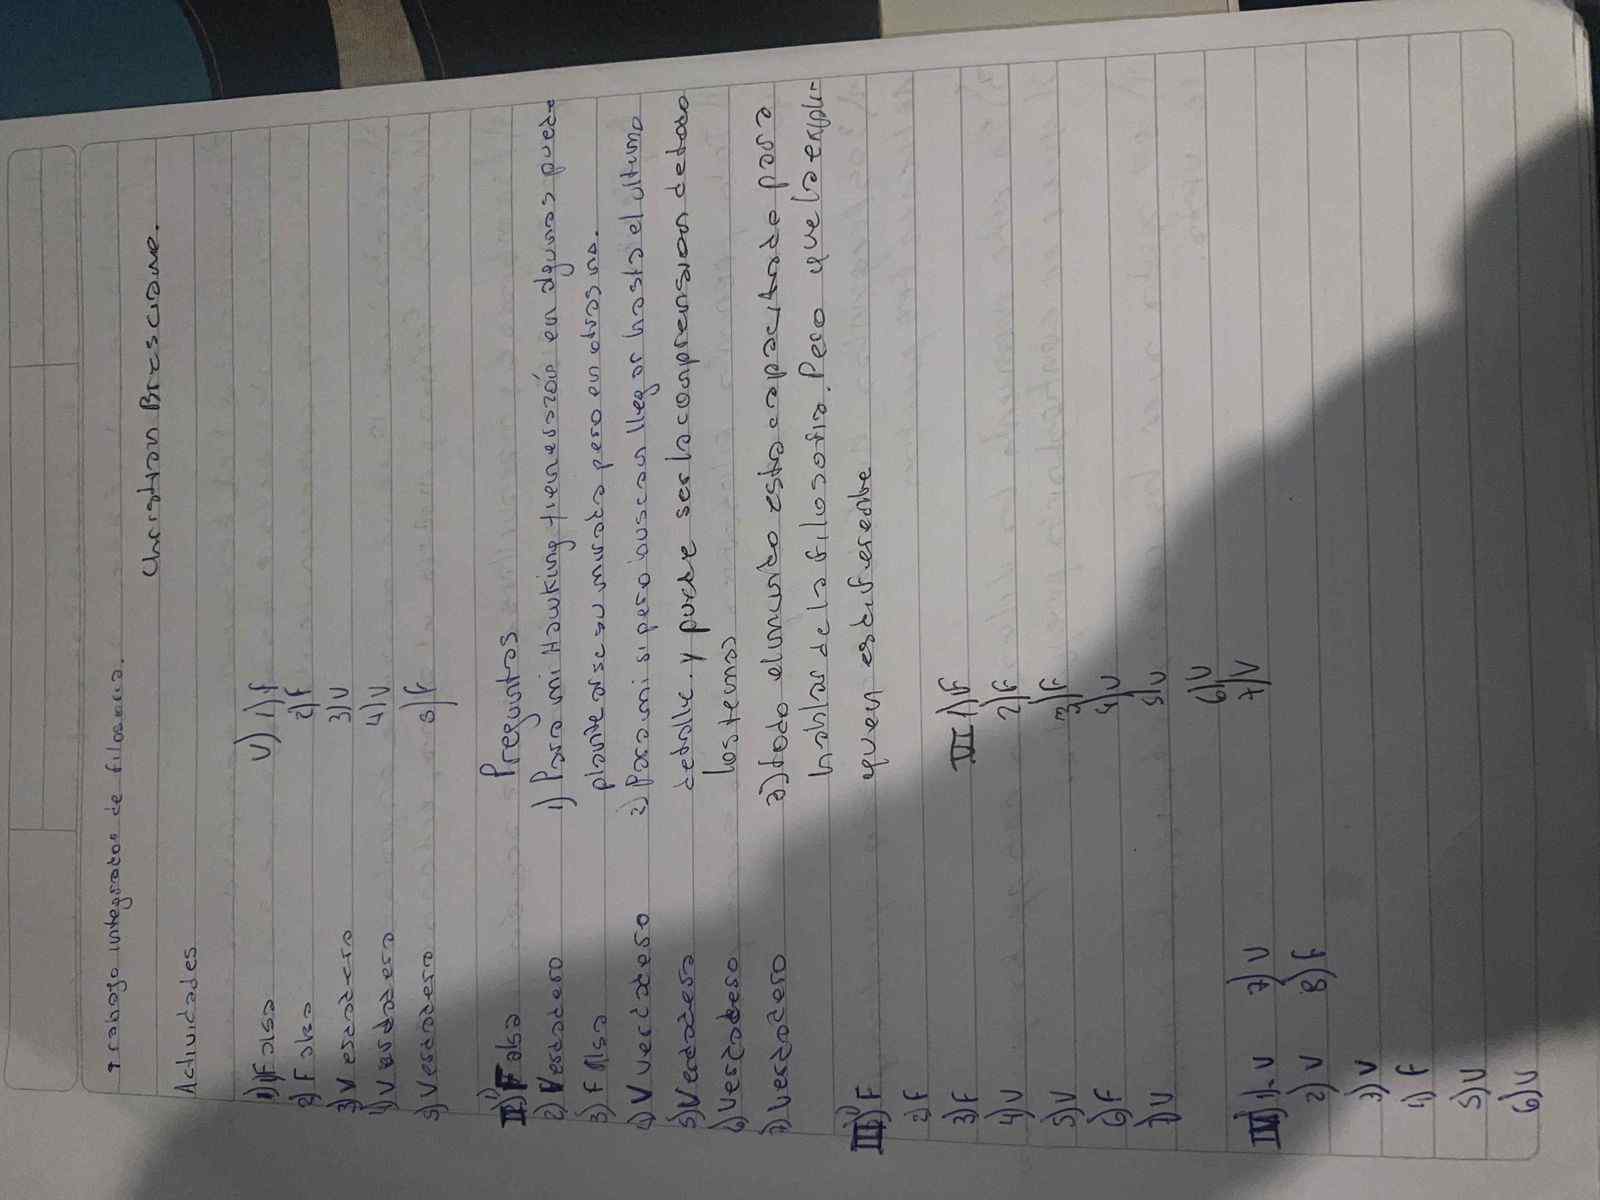 Trabajo integrador de filosofia.
Christian Bresciane.
Actividades
1) Falso
2) Falso
3) Verdadero
4) Verdadero
5) Verdadero
II) 1) Falso
2) Verdadero
3) Falso
4) V verdadero
5) Verdadero
6) Verdadero
7) Verdadero
III) 1) F
2) F
3) F
4) V
5) V
6) F
7) V
IV) 1. V
2) V
3) V
4) F
5) V
6) V
7) V
8) F
V) 1) F
2) F
3) V
4) V
5) F
Preguntas
1) Para mi Hawking tiene razón en algunas puede
plantearse su mirada pero en otras no.
2) Para mi si pero buscan llegar hasta el ultimo
detalle. y puede ser la comprension de todo
los temas
3) todo el mundo esta capacitado para
hablar de la filosofia. Pero que la expli-
quen es diferente
VI 1) F
2) F
3) F
4) V
5) V
6) V
7) V